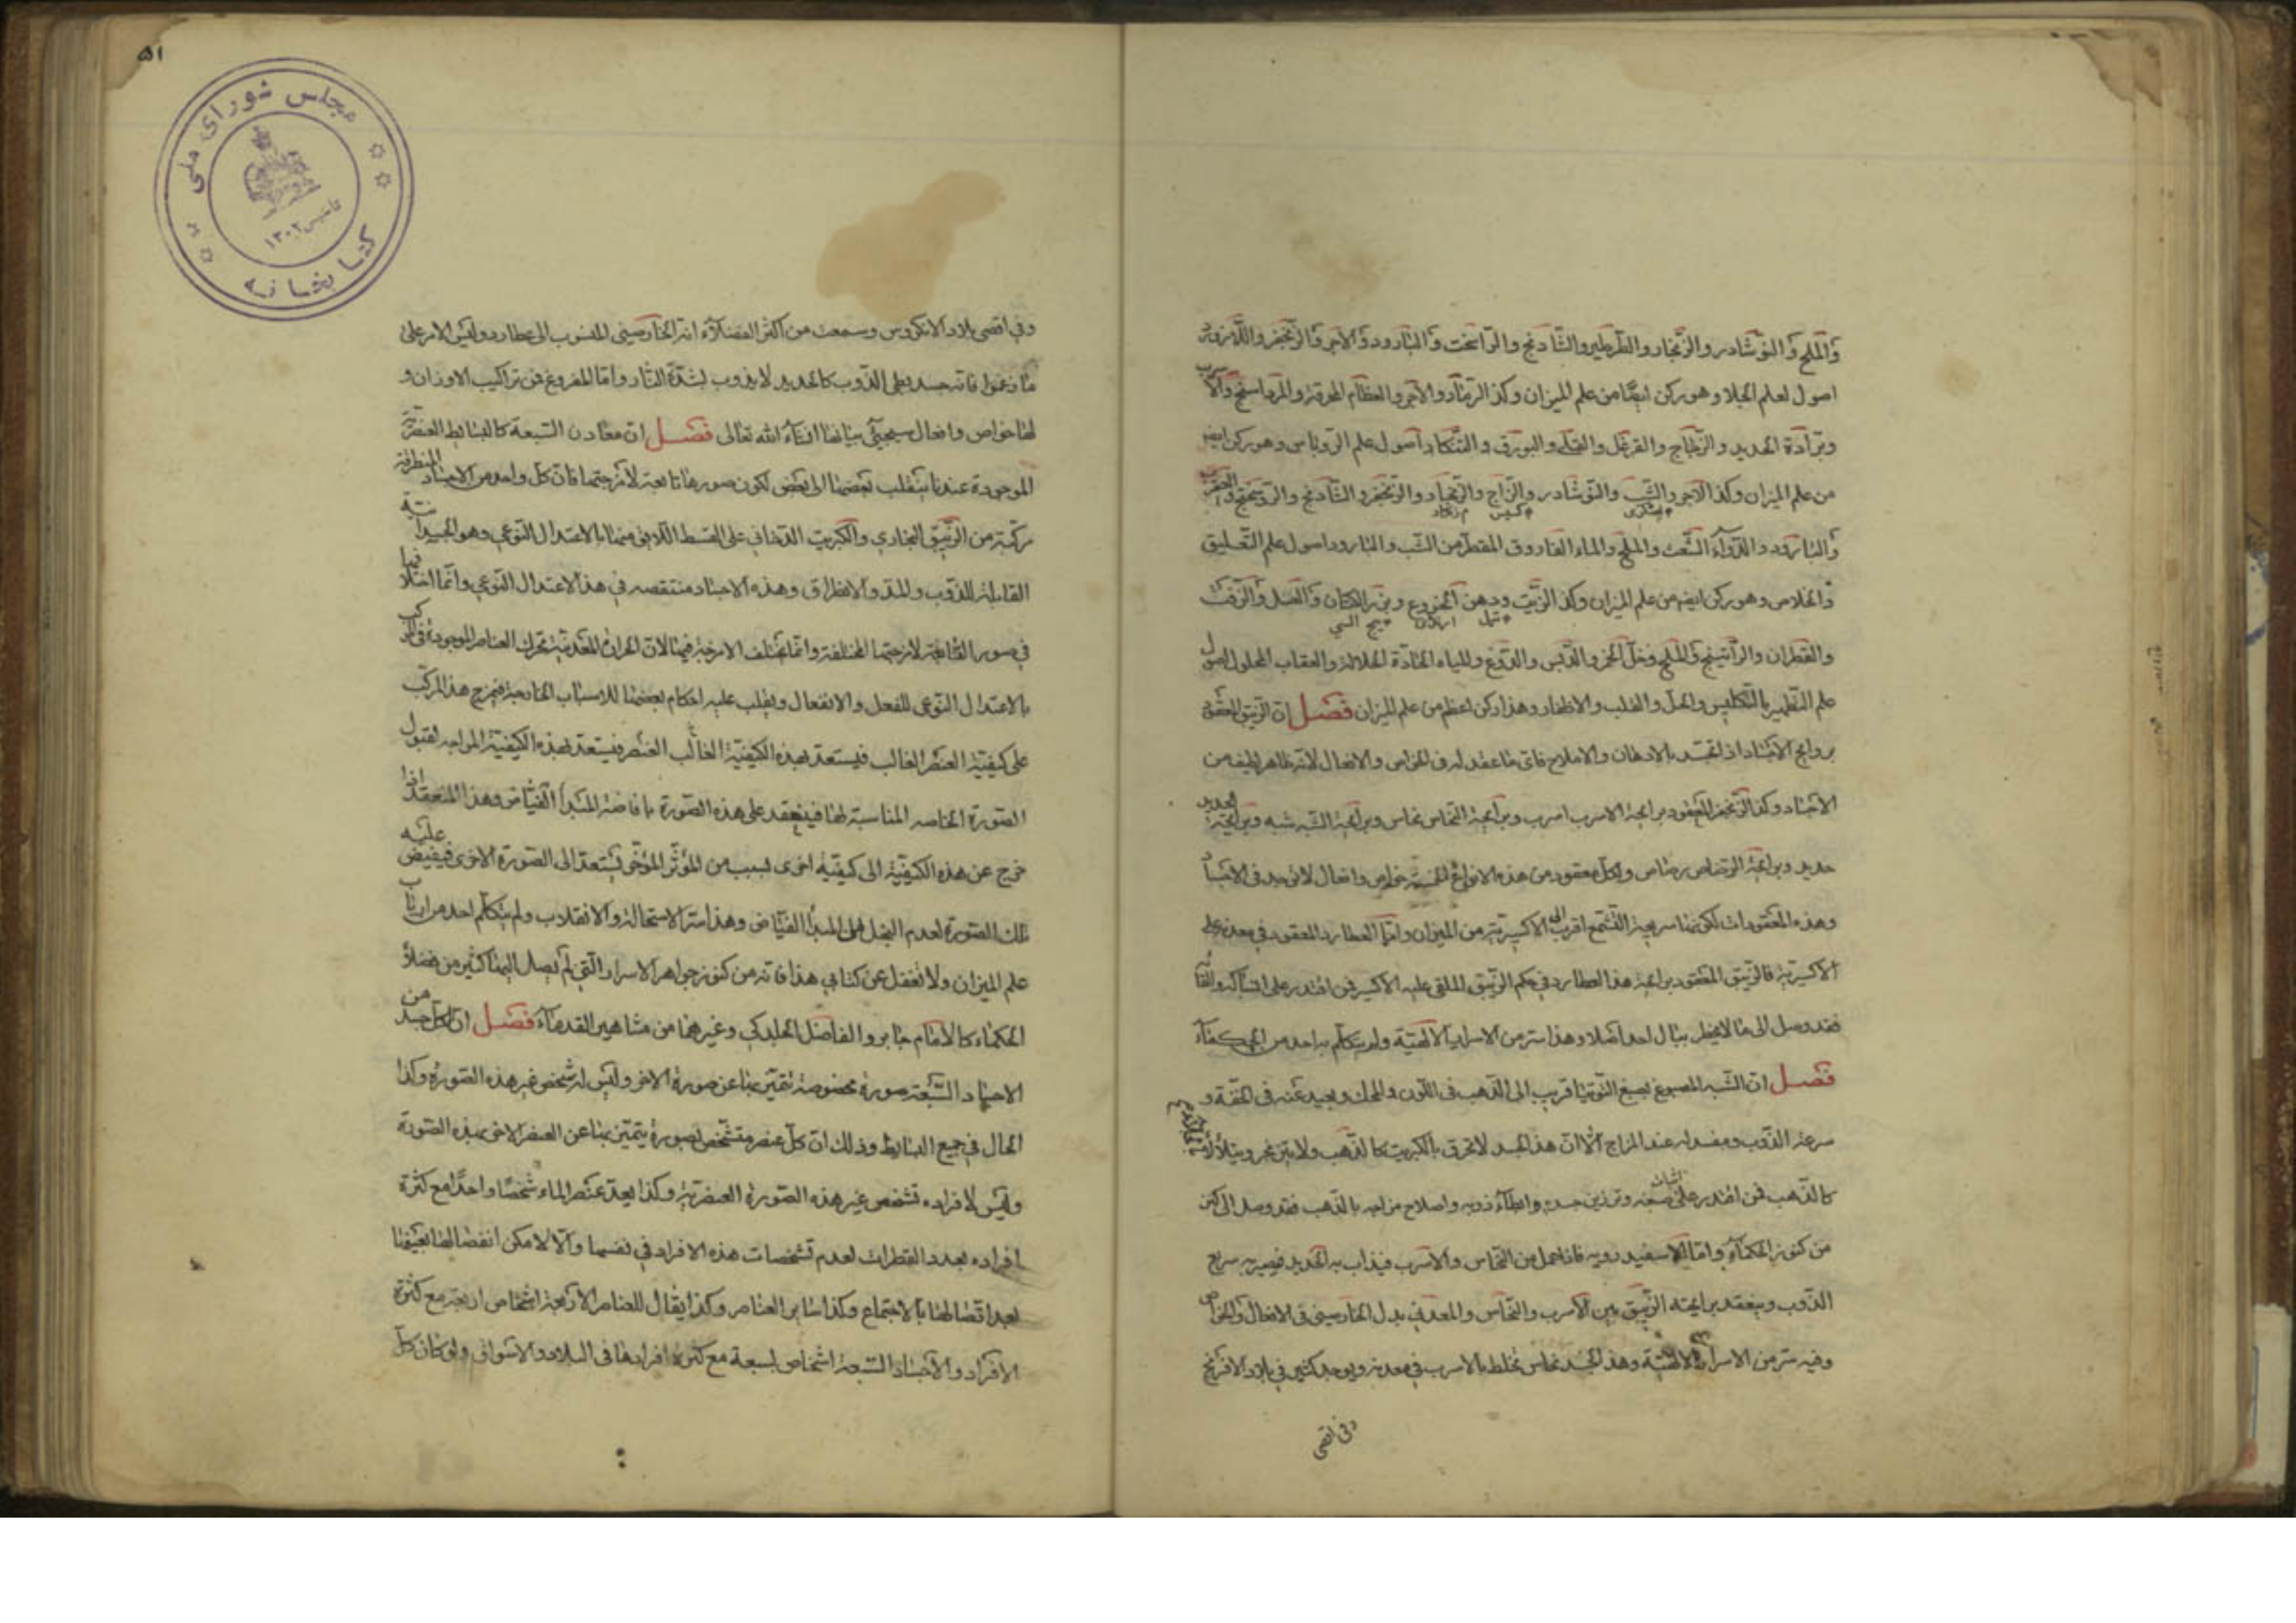 والملح والنوشادر والزنجار والقرطير والشادنج والراسخت والبارود والآجر والزنجفر واللازورد
اصول لعلم الجلا وهو ركن ايضًا من علم الميزان وكذا الرماد والآجر والعظام المحرقة والمرداسنج والاسرب
وبرادة الحديد والزجاج والقرنفل والقلى والبورق والتنكار اصول علم الروباس وهو ركن ايضا
من علم الميزان وكذا الآجر والشب والنوشادر والزاج والزنجار والزنجفر والشادنج والروسختج و
والبارود والدواء الشعث والملح والماء الفاروق المقطر من الشب والبارود اصول علم التعليق
والخلاص وهو ركن ايضا من علم الميزان وكذا الزيت ودهن الخروع وبزر الكتان والعسل والزفت
والقطران والراتينج والملح وخل الخمر والدبس والدوغ والمياه الحادة الحلالة والعقاب المحلول اصول
علم التطهير بالتكليس والحل والقلب والاظفار وهذا ركن اعظم من علم الميزان فصل ان الزيبق المعقود
بروايح الاجساد اذا تقيد بالادهان والاملاح فاق ما عقد له في الخواص والافعال لانه ظاهر لطيف من
الاجساد وكذا الزنجفر المعقود برايحة الاسرب اسرب وبرايحة النحاس نحاس وبرايحة الشبه شبه وبرايحة الحديد
حديد وبرايحة الرصاص رصاص ولكل معقود من هذه الانواع الخمسة خواص وافعال لا توجد في الاجساد
وهذه المعقودات لكونها سريعة التشمع اقرب الى الاكسيرية من الميزان واما العطارد المعقود في معدنه على
الاكسيرية فالزيبق المعقود برايحة هذا العطارد في حكم الزيبق الملقى عليه الاكسير فمن اقتدر على امساكه والقائه
فقد وصل الى ما لا يخطر ببال احد اصلا وهذا سر من الاسرار الالهية ولم يتكلم به احد من الحكماء
فصل ان الشبه المصبوغ بصبغ التوتيا قريب الى الذهب في اللون والمحك وبعيد عنه في الخفة و
سرعة الذوب ومفسد له عند المزاج الا ان هذا الجسد لا تحرق بالكبريت كالذهب ولا يتزنجر ويتلألأ
كالذهب فمن اقتدر على اثبات صبغه وترزين جسده وابطاء ذوبه واصلاح مزاجه بالذهب فقد وصل الى كنز
من كنوز الحكماء واما الاسفيدرويه فاذا حمل من النحاس والاسرب فيذاب به الحديد فيصير به سريع
الذوب وينعقد برايحته الزيبق بين الاسرب والنحاس والمعدني بدل الخارصيني في الافعال والخواص
وفيه سر من الاسرار الالهية وهذا الجسد نحاس مختلط بالاسرب في معدنه ويوجد كثير في بلاد الافرنج
وفي اقصى
۵۱
مجلس شورای ملی
کتابخانه
تاسیس ۱۳۰۲
وفي اقصى بلاد الانكروس وسمعت من اكثر الفضلاء انه الخارصيني المنسوب الى عطارد وليس الامر على
ما زعموا فانه جسد بطئ الذوب كالحديد لا يذوب بشدة النار واما المفروغ من تراكيب الاوزان و
لها خواص وافعال سيجيئ بيانها انشاء الله تعالى فصل ان معادن السبعة كالبسائط العنصرية
الموجودة عندنا ينقلب بعضها الى بعض لكون صورها تابعة لامزجتها فان كل واحد من الاجساد المنطرقة
مركبة من الزيبق البخاري والكبريت الدخاني على القسط اللايق منها بالاعتدال النوعي وهو الجسدانية
القابلة للذوب والمد والانطراق وهذه الاجساد منتقصة في هذا الاعتدال النوعي وانما اختلافها
في صورها التابعة لامزجتها المختلفة وانما تختلف الامزجة فيها لان الحرارة المعدنية تحرك العناصر الموجودة في المركب
بالاعتدال النوعي للفعل والانفعال ويغلب عليه احكام بعضها للاسباب الخارجة فيمزج هذا المركب
على كيفية العنصر الغالب فيستعد لهذه الكيفية الغالب العنصر فيستعد لهذه الكيفية المزاجه لقبول
الصورة الخاصه المناسبة لها فينعقد على هذه الصورة بافاضة المبدأ الفياض وهذا المنعقد اذا
خرج عن هذه الكيفية الى كيفية اخرى بسبب من المؤثر المؤخر يستعد الى الصورة الاخرى فيفيض عليه
تلك الصورة لعدم البخل للمبدأ الفياض وهذا سر الاستحالة والانقلاب ولم يتكلم احد من ارباب
علم الميزان ولا تغفل عن كتابي هذا فانه من كنوز جواهر الاسرار التي لم يصل اليها كثير من فضلاء
الحكماء كالامام جابر والفاضل الجلدكي وغيرهما من مشاهير القدماء فصل ان لكل جسد من
الاجساد السبعة صورة مخصوصة يتميز بها عن صورة الاخر وليس له شخص غير هذه الصورة وكذا
الحال في جميع البسائط وذلك ان كل عنصر متشخص بصورة يتميز بها عن العنصر الاخر بهذه الصورة
وليس لافراده تشخص غير هذه الصورة العنصرية وكذا يعد عنصر الماء شخصا واحدًا مع كثرة
افراده بعدد القطرات لعدم تشخصات هذه الافراد في نفسها والا لامكن انفصالها بعينها
بعد اتصالها بالاجتماع وكذا ساير العناصر وكذا يقال للعناصر الاربعة اشخاص اربعة مع كثرة
الافراد والاجساد السبعة اشخاص لسبعة مع كثرة افرادها في البلاد والاسواق ولو كان كل